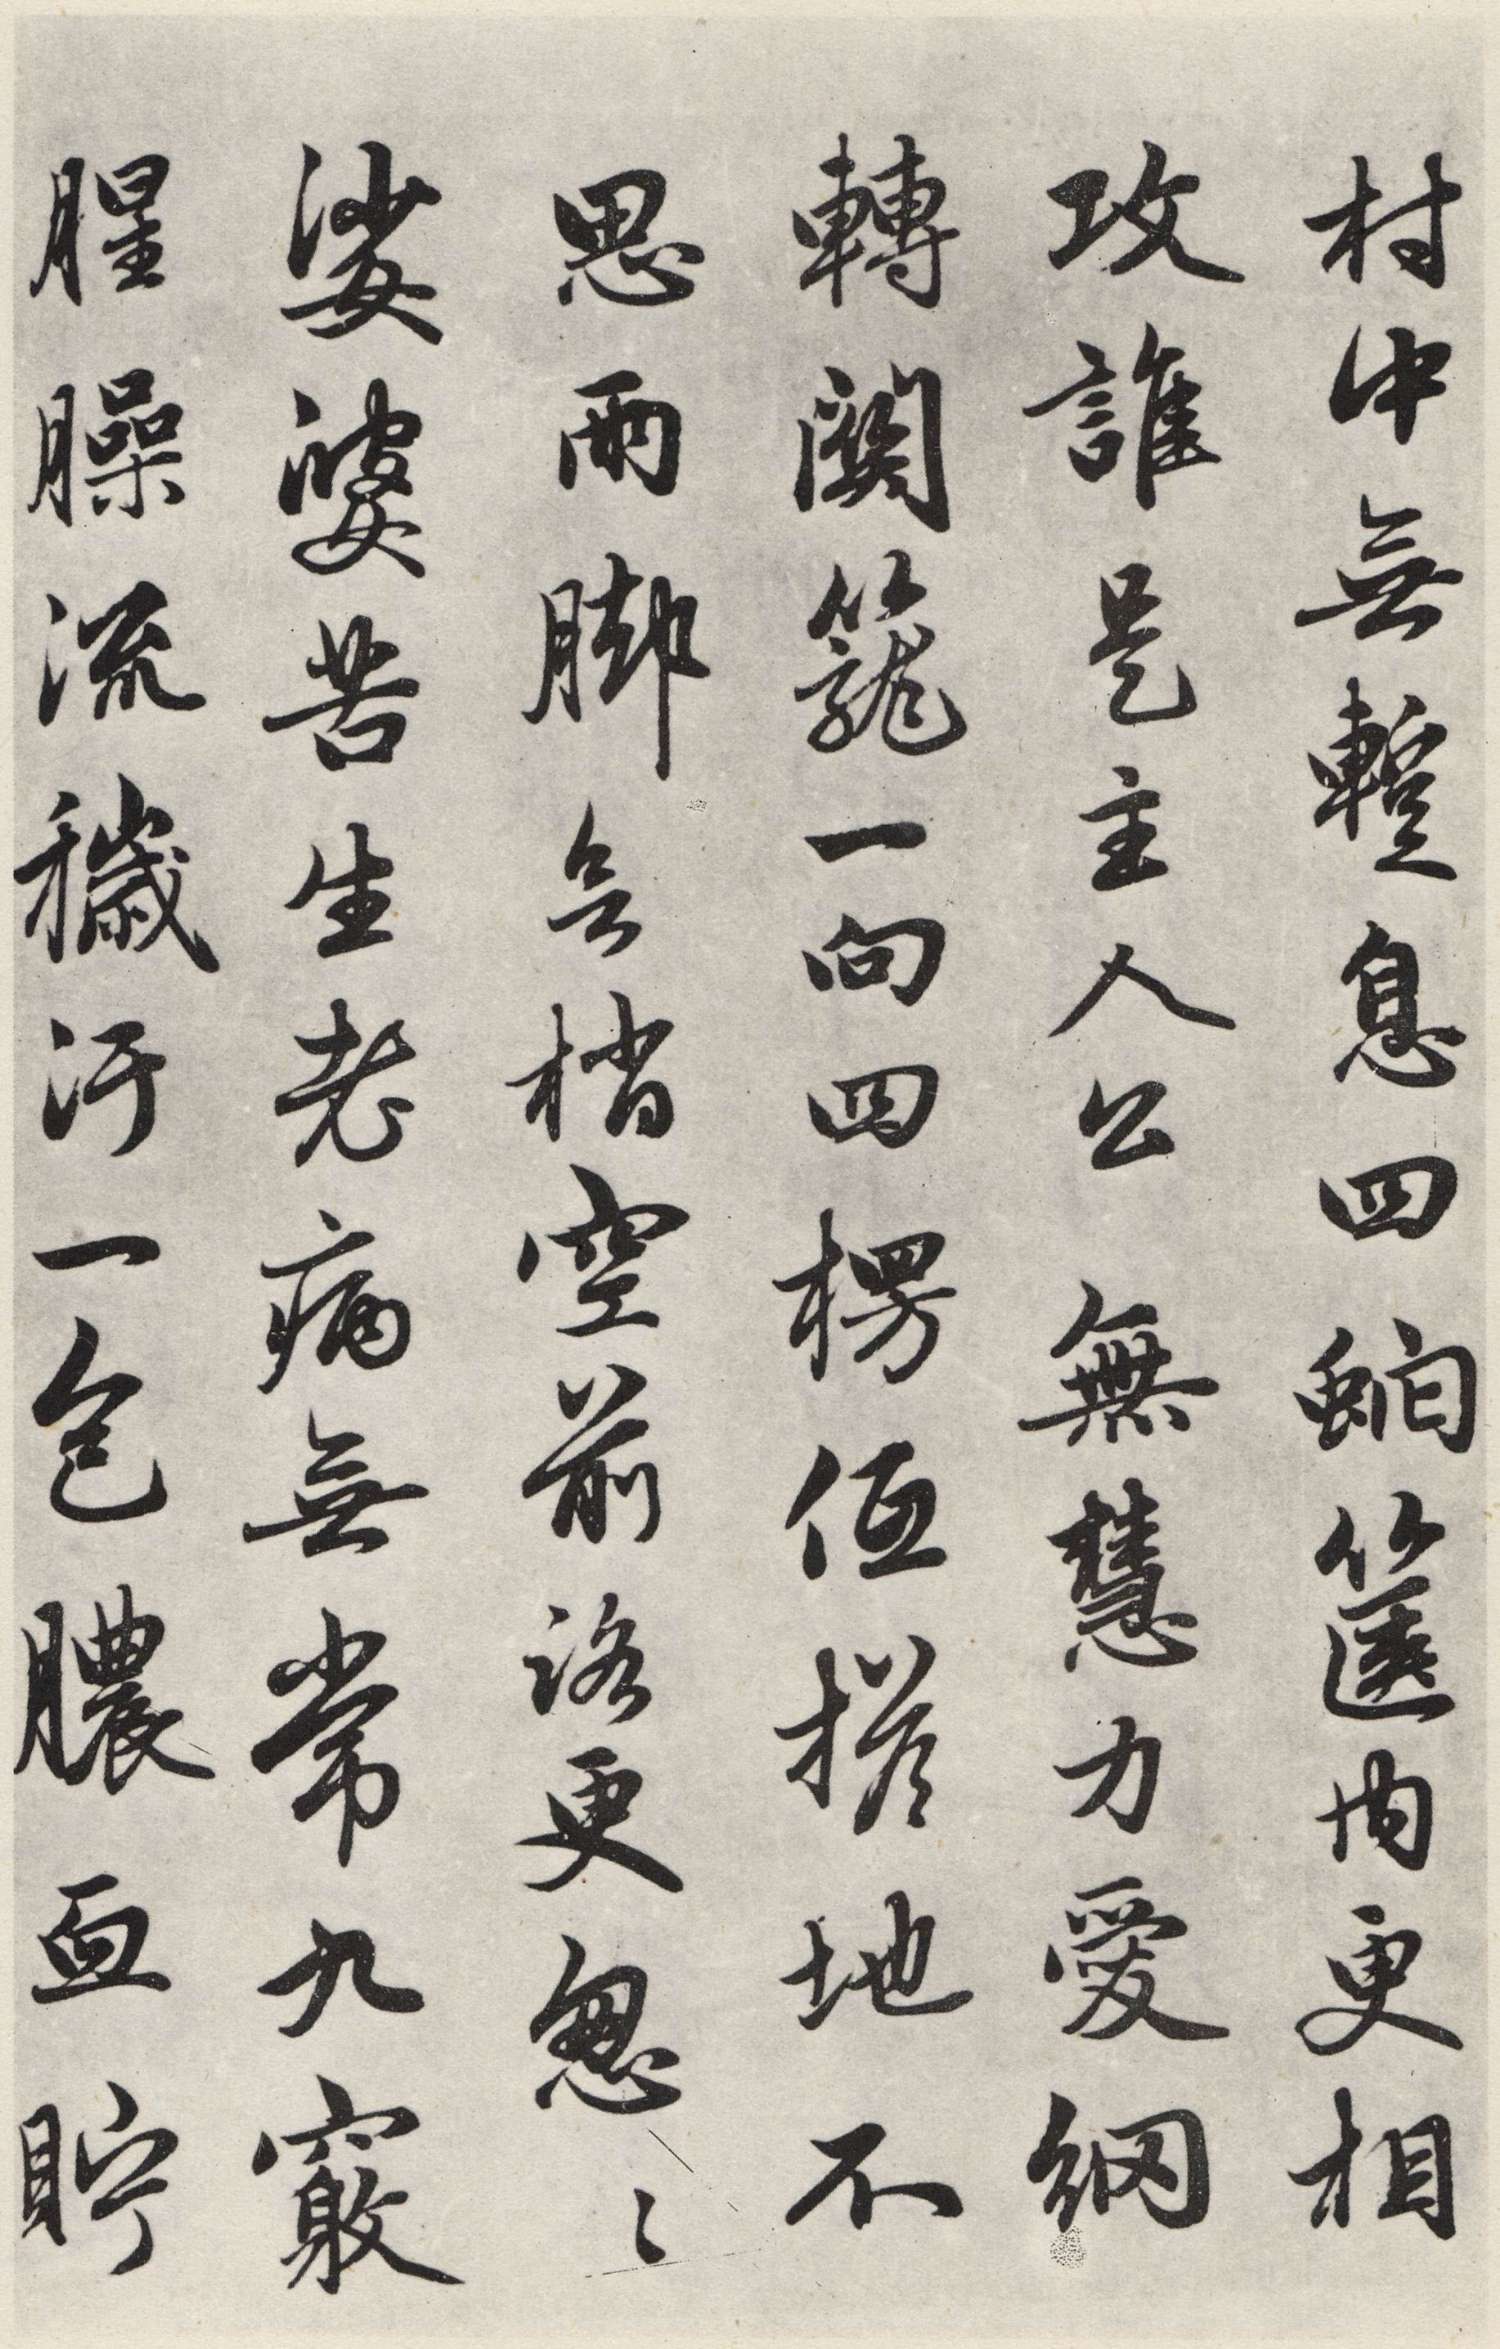 村中無蹔息四虵篋内更相
攻誰是主人公　無慧力愛網
轉關籠一向四楞低搭地不
思兩脚无梢空前路更怱〻
娑婆苦生老病無常九竅
腥臊流穢汙一包膿血貯